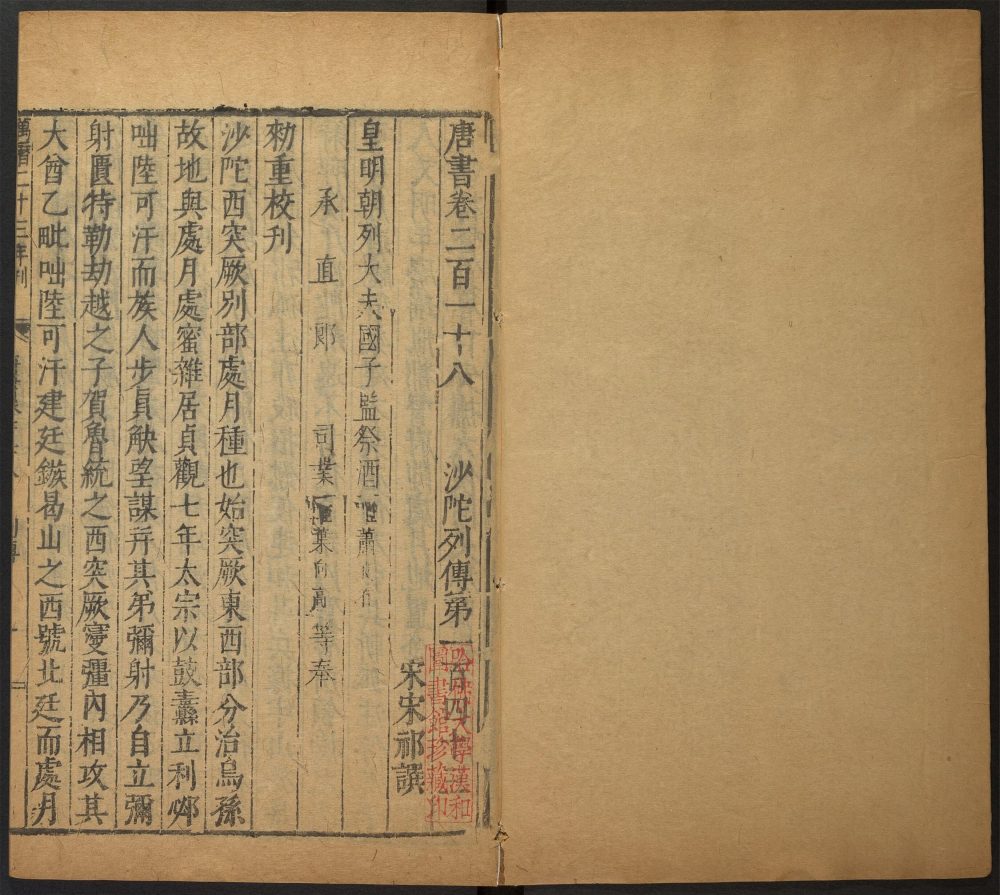 唐書卷二百一十八 沙陀列傳第一百四十三
宋宋祁譔
皇明朝列大夫國子監祭酒臣蕭
承直郎司業臣葉向高等奉
勑重校刊
沙陀西突厥別部處月種也始突厥東西部分治烏孫
故地與處月處蜜雜居貞觀七年太宗以鼓纛立利邲
咄陸可汗而族人步真觖望謀并其弟彌射乃自立彌
射匱特勒劫越之子賀魯統之西突厥寖彊內相攻其
大酋乙毗咄陸可汗建廷鏃曷山之西號北廷而處月
萬曆二十三年刊
哈佛大學漢和
圖書館珍藏印